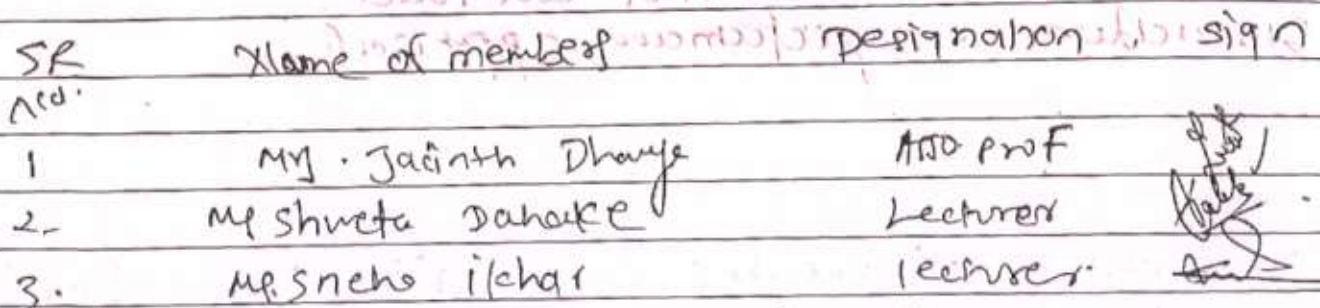 SR Name of members Designation sign
no.
1 Mrs. Jacinth Dhaye Asso prof
2. Ms Shweta Dahake Lecturer
3. Ms. Sneha ilchar lecturer.